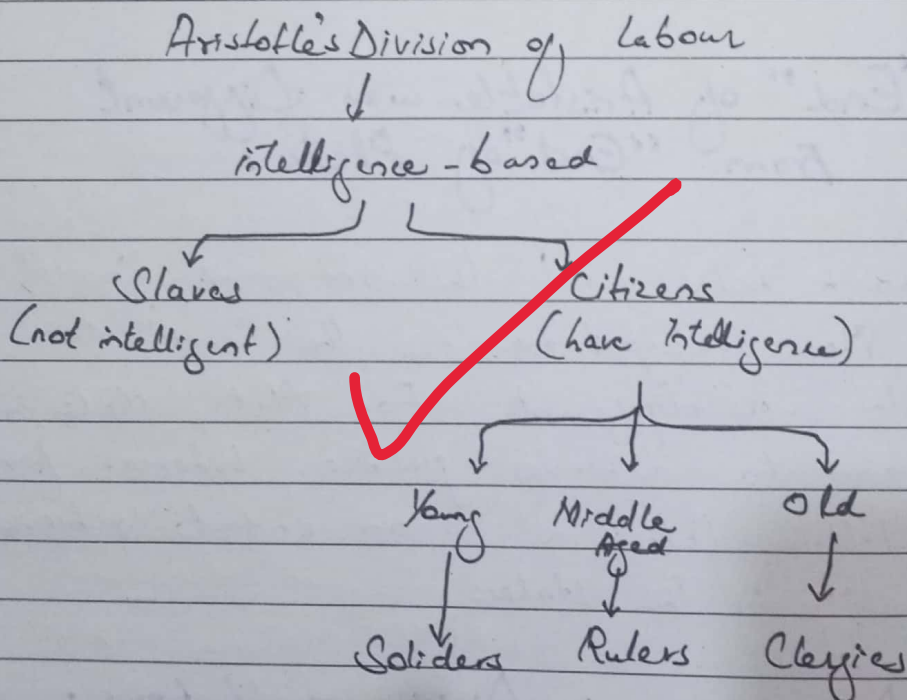 Aristotle's Division of Labour
intelligence-based
Slaves Citizens
(not intelligent) (have intelligence)
Young Middle Old
Aged
Soliders Rulers Clergies